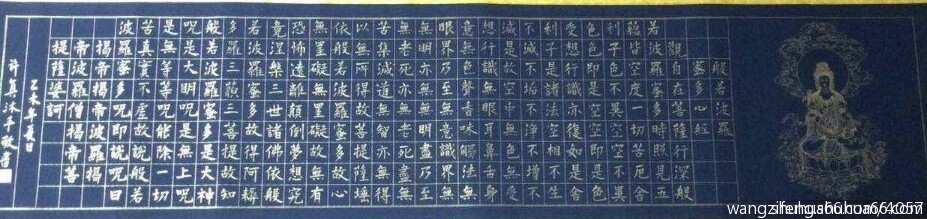 般若波羅
蜜多心經
觀自在菩薩行深般
若波羅蜜多時照見五
蘊皆空度一切苦厄舍
利子色不異空空不異
色色即是空空即是色
受想行識亦復如是舍
利子是諸法空相不生
不滅不垢不淨不增不
減是故空中無色無受
想行識無眼耳鼻舌身
意無色聲香味觸法無
眼界乃至無意識界無
無明亦無無明盡乃至
無老死亦無老死盡無
苦集滅道無智亦無得
以無所得故菩提薩埵
依般若波羅蜜多故心
無罣礙無罣礙故無有
恐怖遠離顛倒夢想究
竟涅槃三世諸佛依般
若波羅蜜多故得阿耨
多羅三藐三菩提故知
般若波羅蜜多是大神
呪是大明呪是無上呪
是無等等呪能除一切
苦真實不虛故說般若
波羅蜜多呪即說呪曰
揭帝揭帝波羅揭
帝波羅僧揭帝菩
提薩婆訶
乙未年夏日
沐手敬書